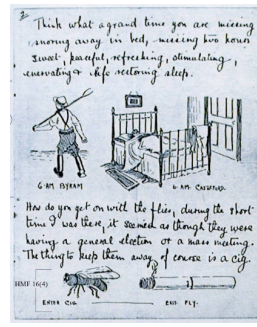 2
Think what a grand time you are missing
snoring away in bed, missing two hours
sweet, peaceful, refreshing, stimulating,
enervating & life restoring sleep.
6·AM BYRAM
6·AM· CATSFIELD.
How do you get on with the flies, during the short
time I was there, it seemed as though they were
having a general election or a mass meeting.
The thing to keep them away, of course is a cig.
HMF 16(4)
ENTER CIG.
EXIT FLY.